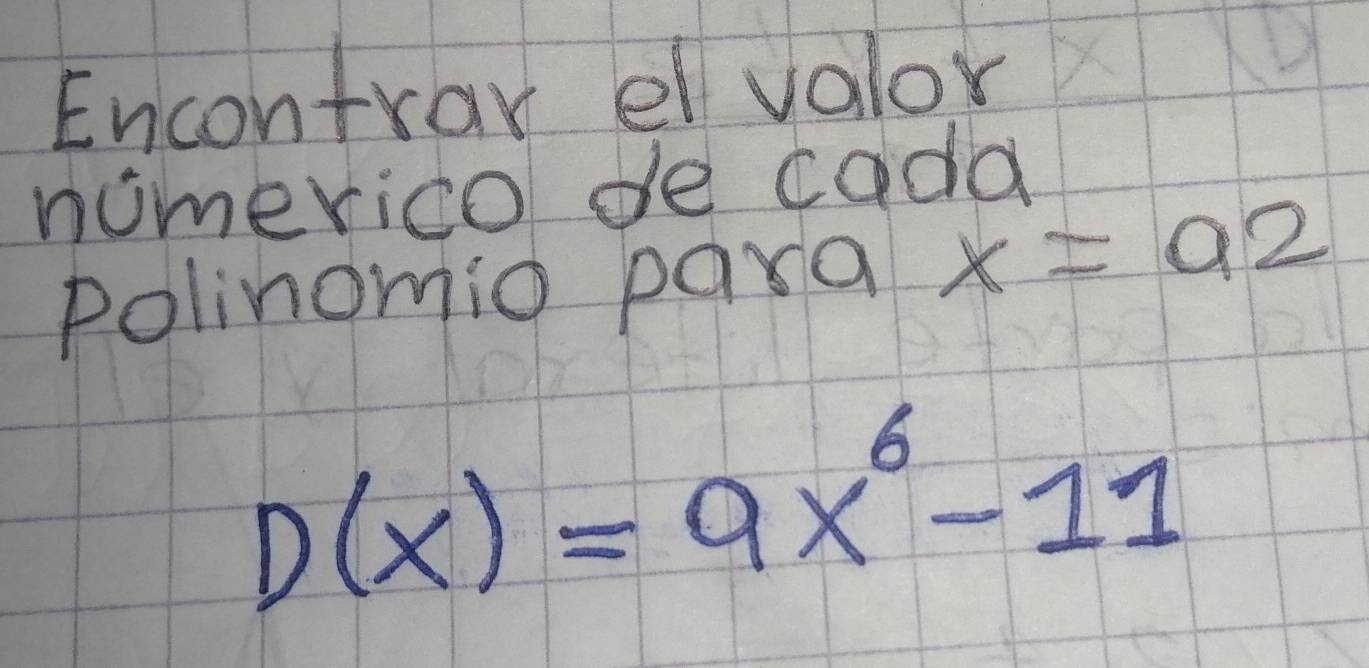 Encontrar el valor
númerico de cada
polinomio para x = a2
D(x) = 9x⁶ - 11